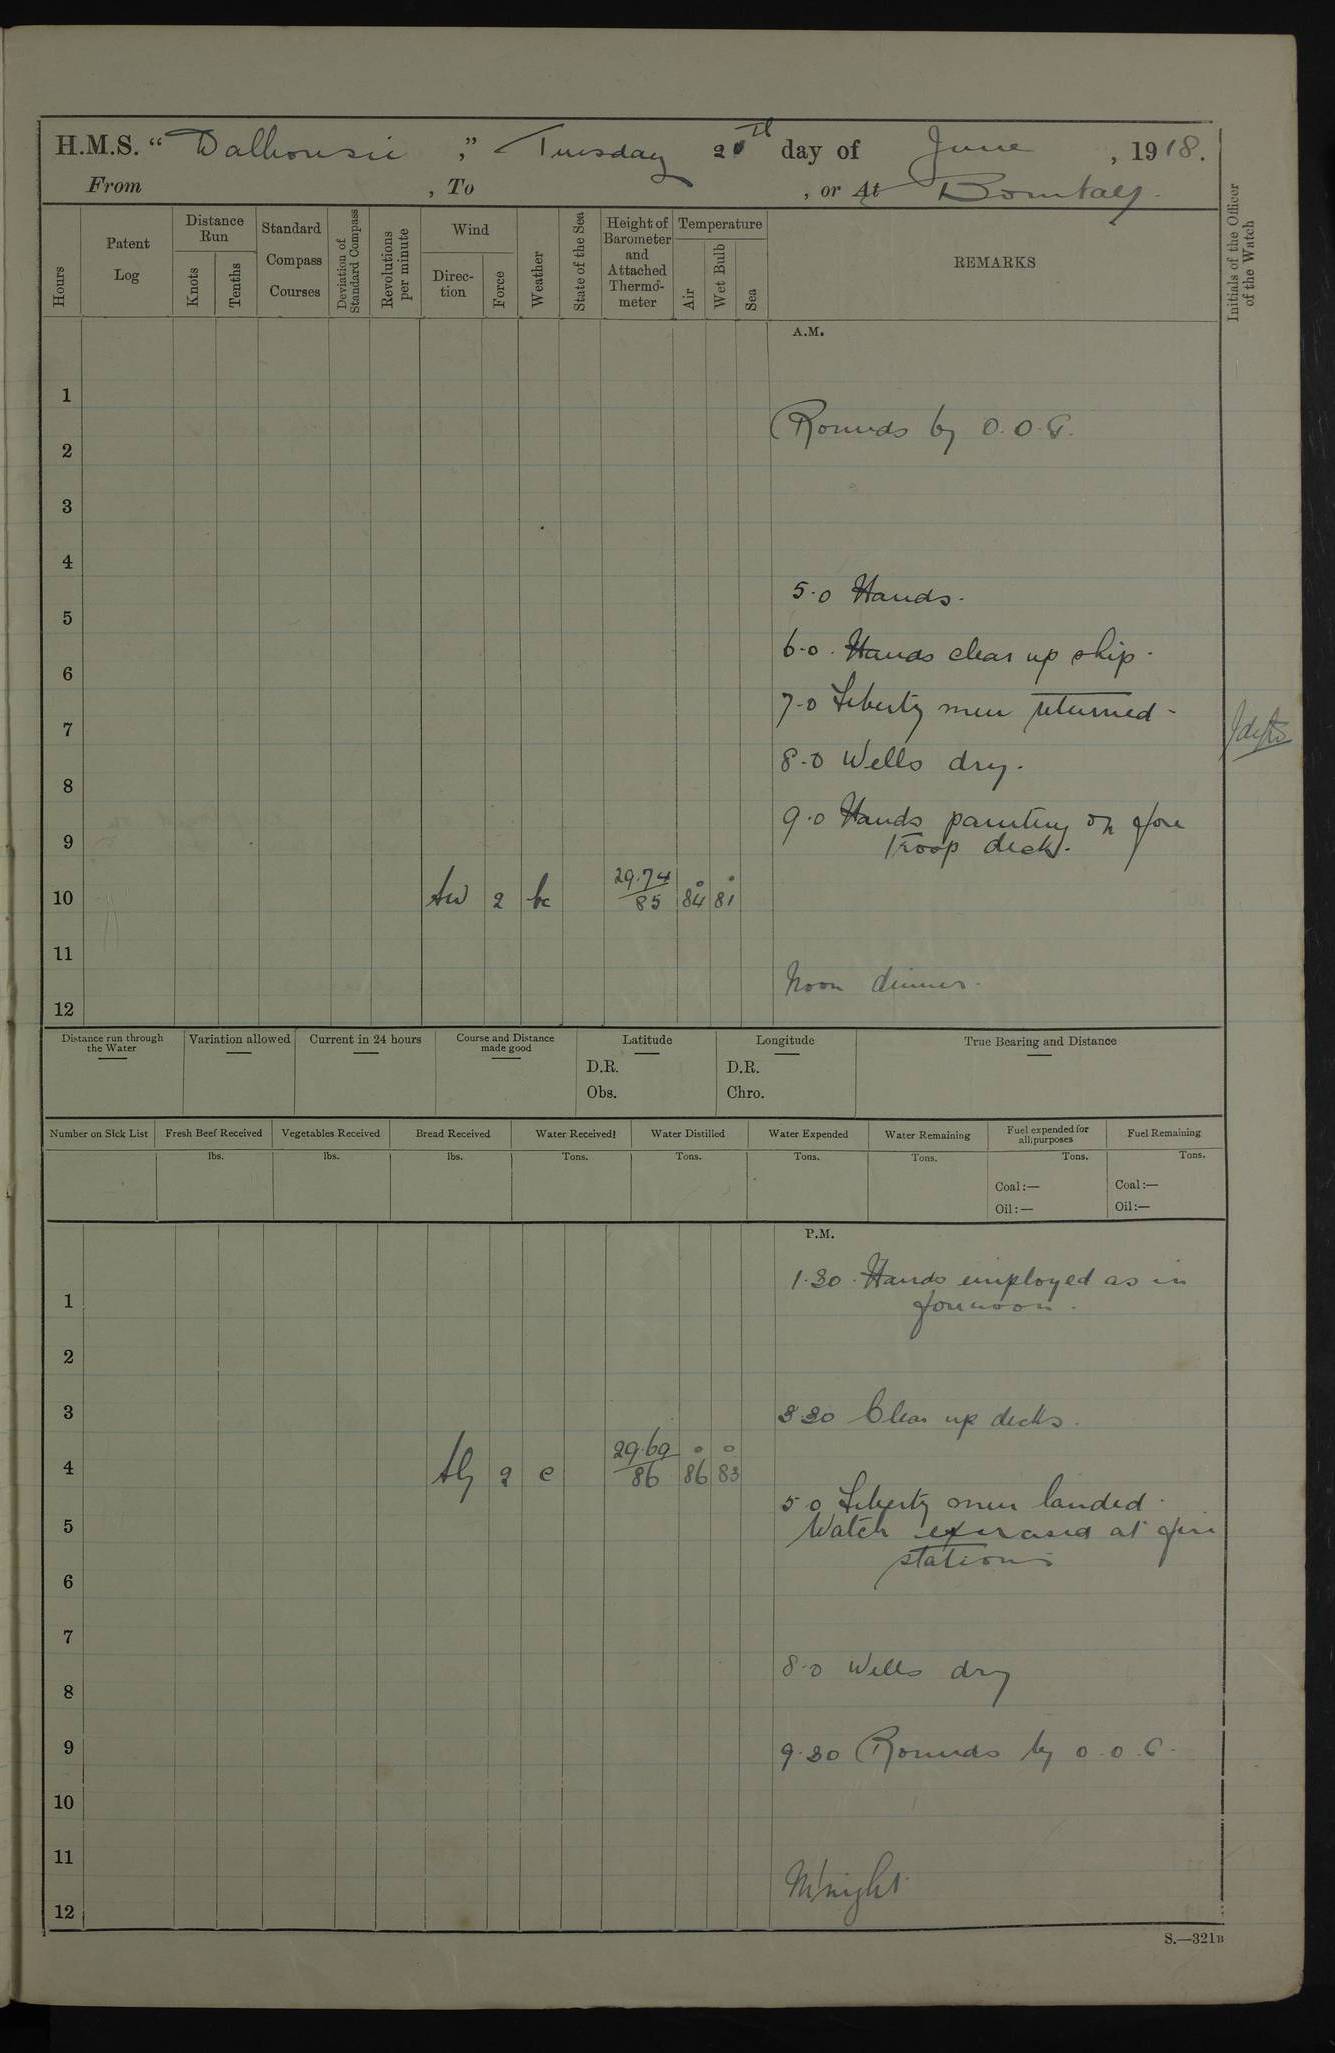 H.M.S. “ Dalhousie ,” Tuesday day of June , 1918.
From , To , or At Bombay.
Hours
Patent Log
Distance Run
Knots
Tenths
Standard Compass Courses
Deviation of Standard Compass
Revolutions per minute
Wind
Direction
Force
Weather
State of the Sea
Height of Barometer and Attached Thermometer
Temperature
Air
Wet Bulb
Sea
REMARKS
Initials of the Officer of the Watch
A.M.
1
Rounds by O.O.
2
3
4
5.0 Hands.
5
6.0. Hands clear up ship.
6
7.0 Liberty men returned.
7
8.0 Wells dry.
8
9.0 Hands painting on fore
9
troop deck.
10 2 bc 29.74 / 85 84° 81°
11
Noon dinner.
12
Distance run through the Water
Variation allowed
Current in 24 hours
Course and Distance made good
Latitude
D.R.
Obs.
Longitude
D.R.
Chro.
True Bearing and Distance
Number on Sick List
Fresh Beef Received
lbs.
Vegetables Received
lbs.
Bread Received
lbs.
Water Received
Tons.
Water Distilled
Tons.
Water Expended
Tons.
Water Remaining
Tons.
Fuel expended for all purposes
Tons.
Coal:—
Oil:—
Fuel Remaining
Tons.
Coal:—
Oil:—
P.M.
1.30. Hands employed as in
1
forenoon.
2
3
3.30 Clear up decks.
4 2 c 29.69 / 86 86° 83°
5.0 Liberty men landed.
5
Watch exercised at fire
stations
6
7
8.0 Wells dry
8
9
9.30 Rounds by O.O.
10
11
M'night
12
S.—321B